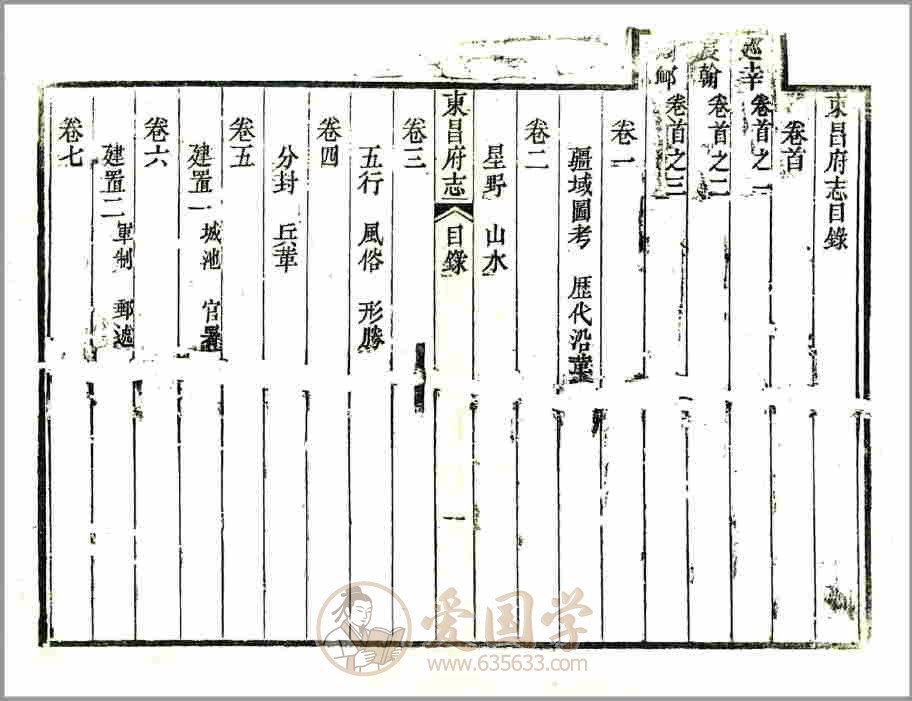 東昌府志目錄
卷首
巡幸 卷首之一
宸翰 卷首之二
卷首之三
卷一
疆域圖考 歷代沿革
卷二
星野 山水
東昌府志 目錄 一
卷三
五行 風俗 形勝
卷四
分封 兵革
卷五
建置一 城池 官署
卷六
建置二 軍制 郵遞
卷七
爱国学
www.635633.com